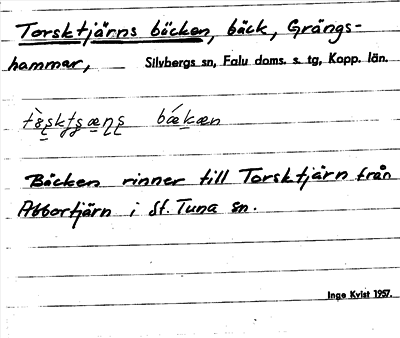 Torsktjärns bäcken, bäck, Grängs-
hammar, Silvbergs sn, Falu doms. s. tg, Kopp. län.
bǽkæn
Bäcken rinner till Torsktjärn från
Abbortjärn i St. Tuna sn.
Inge Kvist 1957.